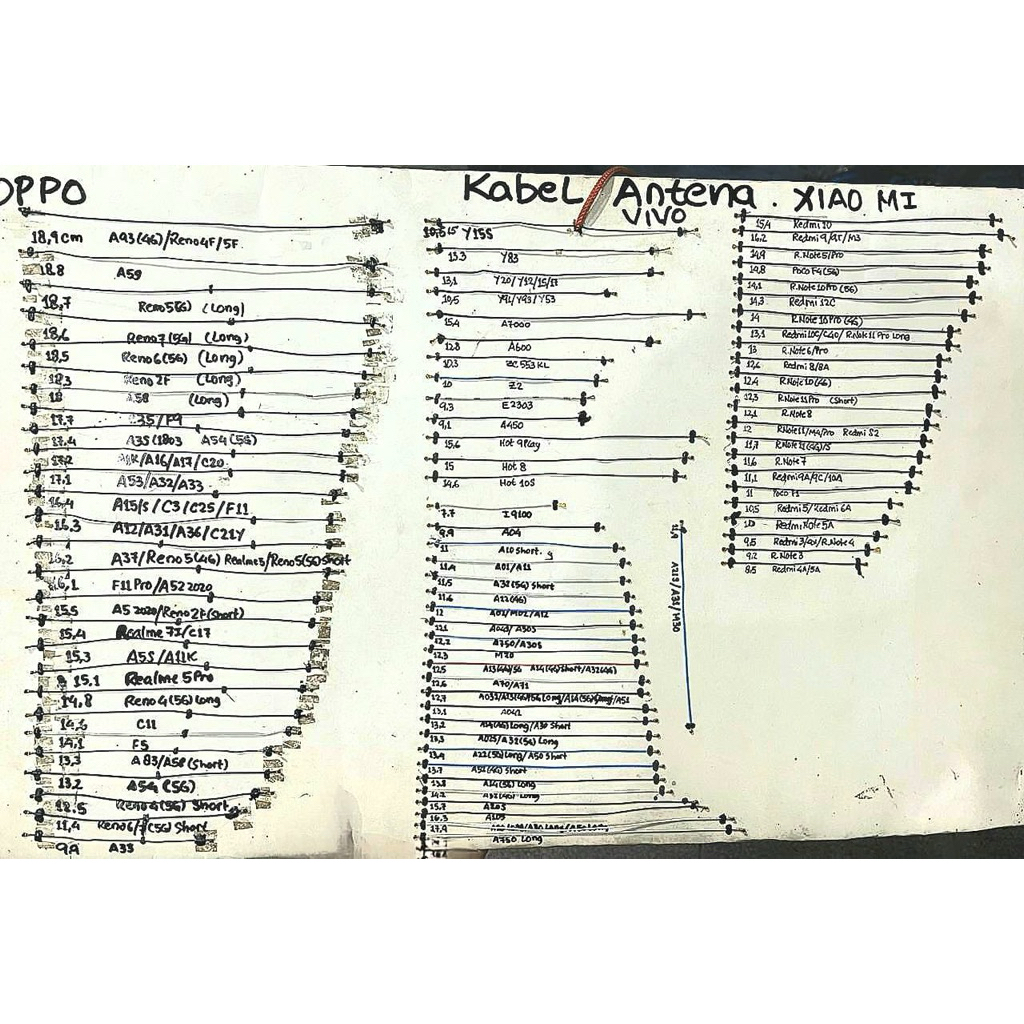 OPPO
18,9cm A93(4G)/Reno4F/5F
18.8 A59
18,7 Reno5(5G) (Long)
18,6 Reno7(5G) (Long)
18,5 Reno6(5G) (Long)
18,3 Reno2F (Long)
18 A58 (Long)
17.7 /F9
17.4 A3S A54(5G)
17.2 /A16/A17/C20
17.1 A53/A32/A33
16,4 A15/s/C3/C25/F11
16.3 A12/A31/A36/C21Y
16,2 A37/Reno5(4G) Realme5/Reno5(5G)Short
16,1 F11 Pro/A52 2020
15,5 A5 2020/Reno2F(Short)
15,4 Realme 7I/C17
15,3 A5S/A11K
15.1 Realme 5 Pro
14,8 Reno4(5G) Long
14,5 C11
14,1 F5
13,3 A83/A58(Short)
13,2 A54 (5G)
12.5 Reno4(5G) Short
11,4 (5G) Short
9,9 A33
Kabel Antena.
VIVO
Y15S
13.3 Y83
13,1 Y20/Y12/15/17
10,5 Y91/Y93/Y53
15,4 A7000
12.8 A600
10.3 ZC 553KL
10 Z2
9.3 E2303
9,1 A450
15,6 Hot 9Play
15 Hot 8
14,6 Hot 10S
7.7 I9100
9.9 A04
11 A10 Short.
11,4 A01/A11
11,5 A32(5G) Short
11,6 A22(4G)
12 A02/M02/A12
12,1 /A30S
12,2 A750/A30S
12,3 M20
12,5 Short/A32(4G)
12,6 A70/A71
12,7 /A51
13,1 A042
13,2 Long/A30 Short
13,3 A02S/A32(5G) Long
13,4 A22(5G)Long/A50 Short
13,7 A52(4G) Short
13,8 A14(5G) Long
14,2 Long
15,7
16,3
17,4
A750 Long
11,9
A213/A31/M30
XIAO MI
15,4 Redmi 10
16,2 Redmi 9/9T/M3
14,9 R.Note5/Pro
14,8 Poco F4(5G)
14,1 R.Note10Pro(5G)
14,3 Redmi 12C
14 R.Note10Pro(4G)
13,1 Redmi10C/C40/R.Note11 Pro Long
13 R.Note6/Pro
12,6 Redmi 8/8A
12,4 R.Note10(4G)
12,3 R.Note11Pro (Short)
12,1 R.Note8
12 R.Note11/M4/Pro Redmi S2
11,7 R.Note11(4G)/S
11,6 R.Note 7
11,1 Redmi9A/9C/10A
11 Poco F1
10,5 Redmi5/Redmi 6A
10 Redmi Note 5A
9,5 R.Note4
9,2 R.Note 3
8,5 Redmi 4A/5A